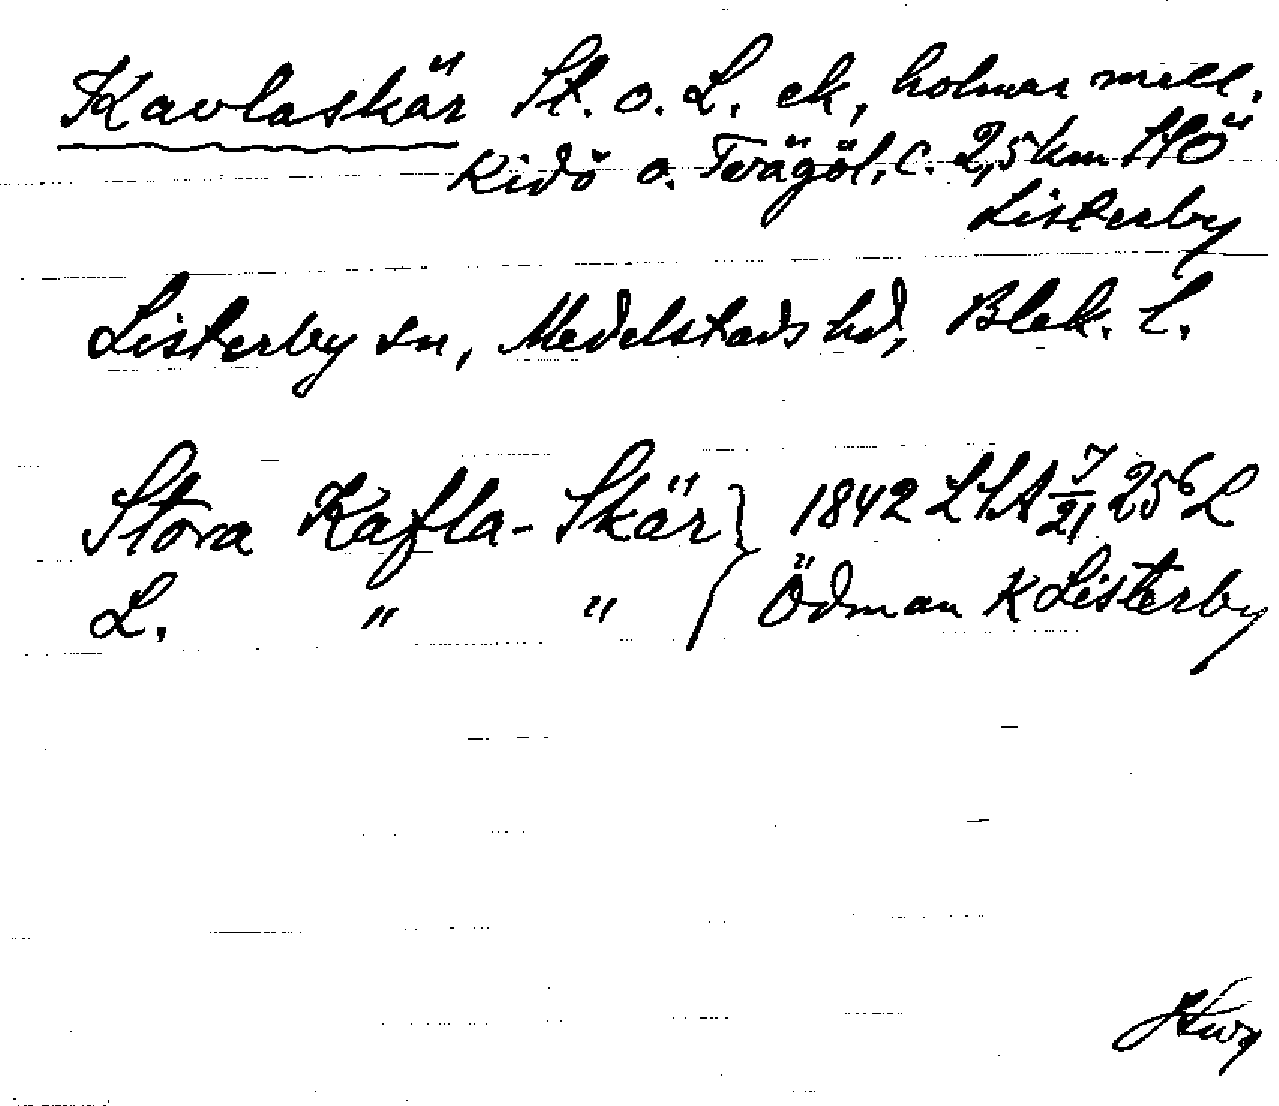 Kavlaskär St. o. L. ek, holmar mell.
Kidö o. Tvägöl, c. 2,5 km SSÖ
Listerby
Listerby sn, Medelstads hd, Blek. l.
Stora Kafla-Skär } 1842 LSA 7/21, 256 L
L. " " } Ödman K Listerby